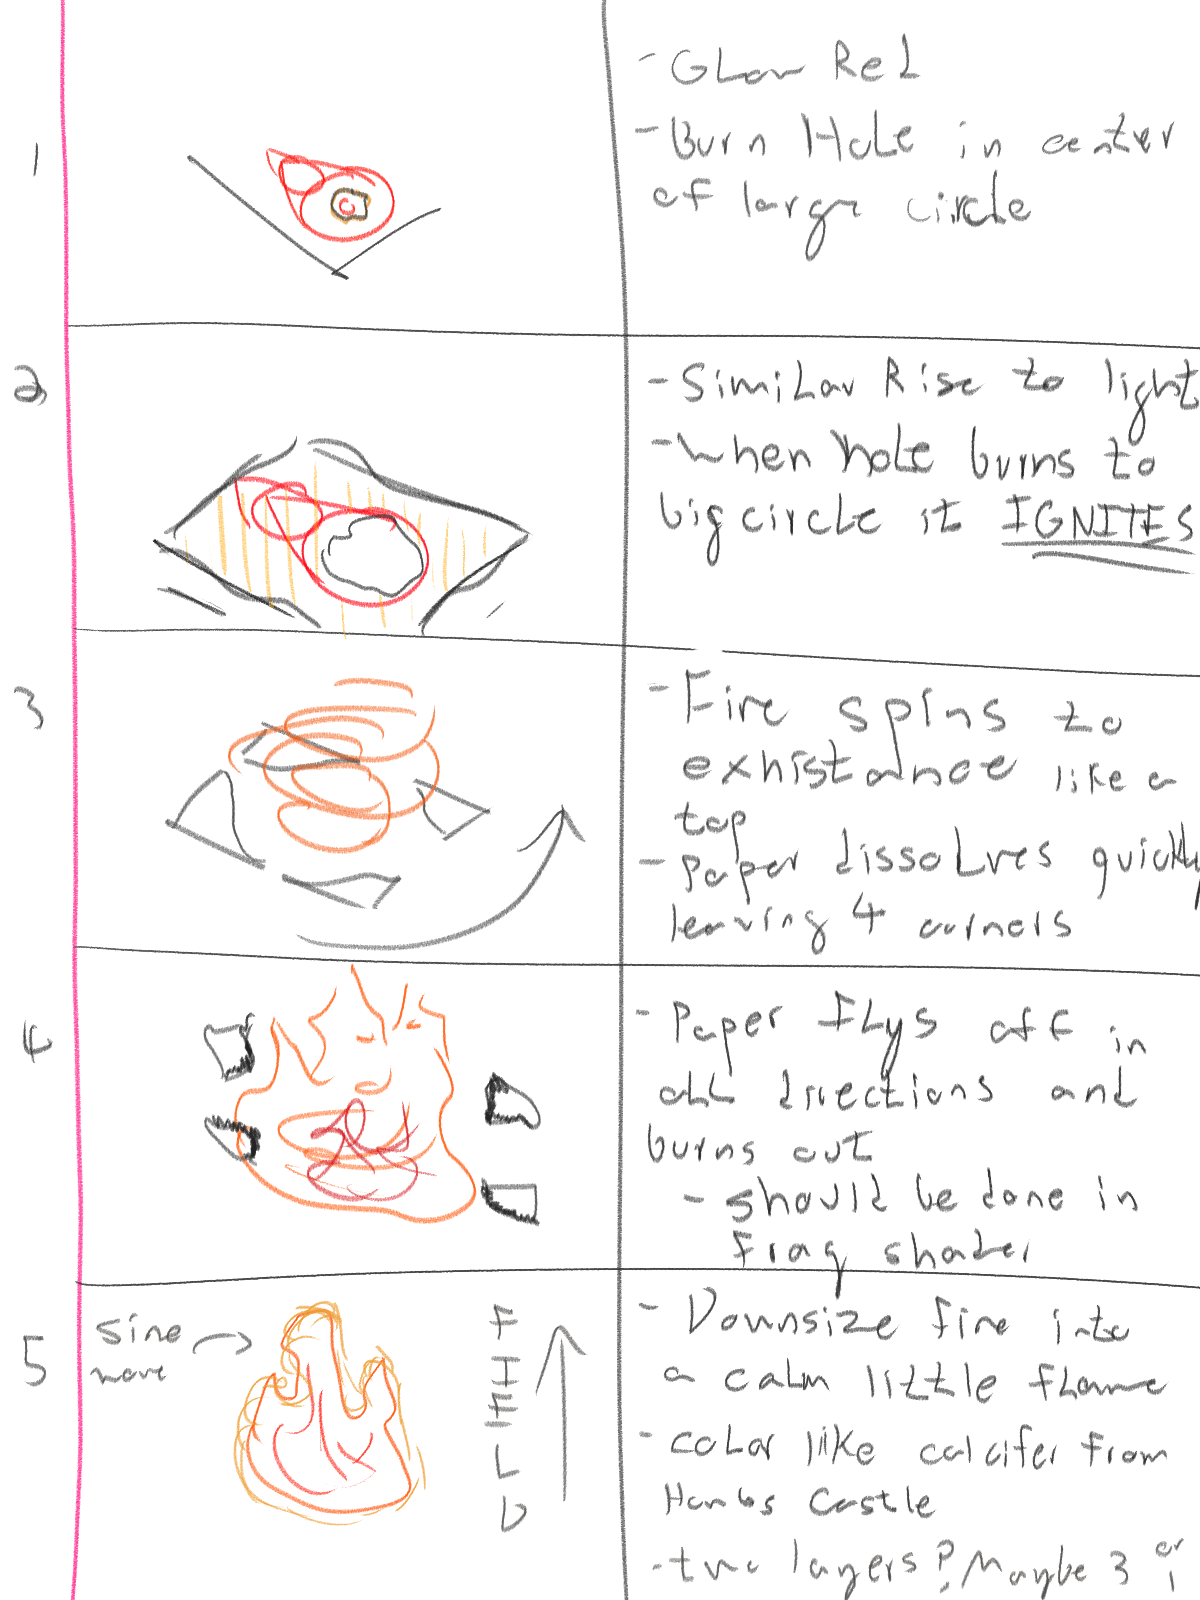 1
- Glow Red
- Burn Hole in center
of large circle
2
- Similar Rise to light
- When hole burns to
big circle it IGNITES
3
- Fire spins to
exhistance like a
top
- Paper dissolves quickly
leaving 4 corners
4
- Paper Flys off in
all directions and
burns out
- should be done in
frag shader
5
sine
wave
FIELD
- Downsize fire into
a calm little flame
- color like calcifer from
Howls Castle
- two layers? Maybe 3 or 1